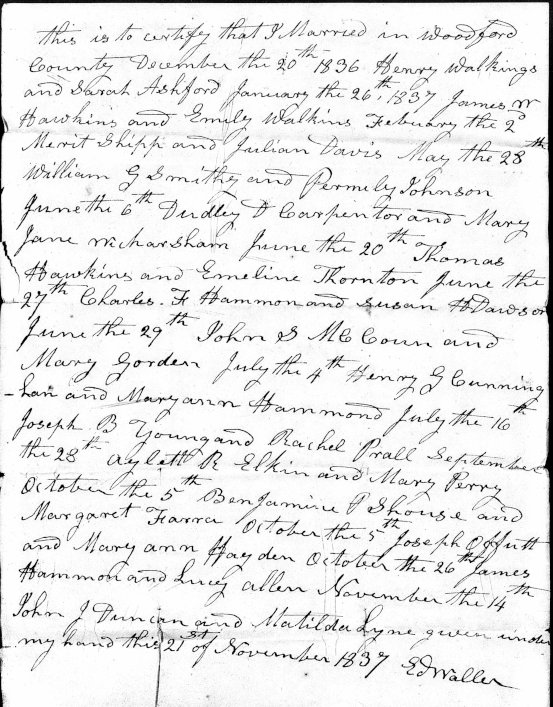 this is to certify that I Married in Woodford
County December the 20th 1836 Henry Walkings
and Sarah Ashford January the 26th, 1837 James W
Hawkins and Emily Walkins Febuary the 2d
Merit Shipp and Julian Davis May the 28th
William G Smithy and Permely Johnson
June the 6th Dudley D Carpentor and Mary
Jane June the 20th Thomas
Hawkins and Emeline Thornton June the
27th Charles. F Hammon and Susan H Dawson
June the 29th John S McCoun and
Mary Gorden July the 4th Henry G Cunning
-han and Maryann Hammond July the 16th
Joseph B Young and Rachel Prall September
the 28th Aylett R Elkin and Mary Perry
October the 5th Benjamine P Shouse and
Margaret Farra October the 5th Joseph Offutt
and Mary ann Hayden October the 26th James
Hammon and Lucy allen November the 14th
John J Duncan and Matilda Lyne given under
my hand this 21st of November 1837 Ed Waller